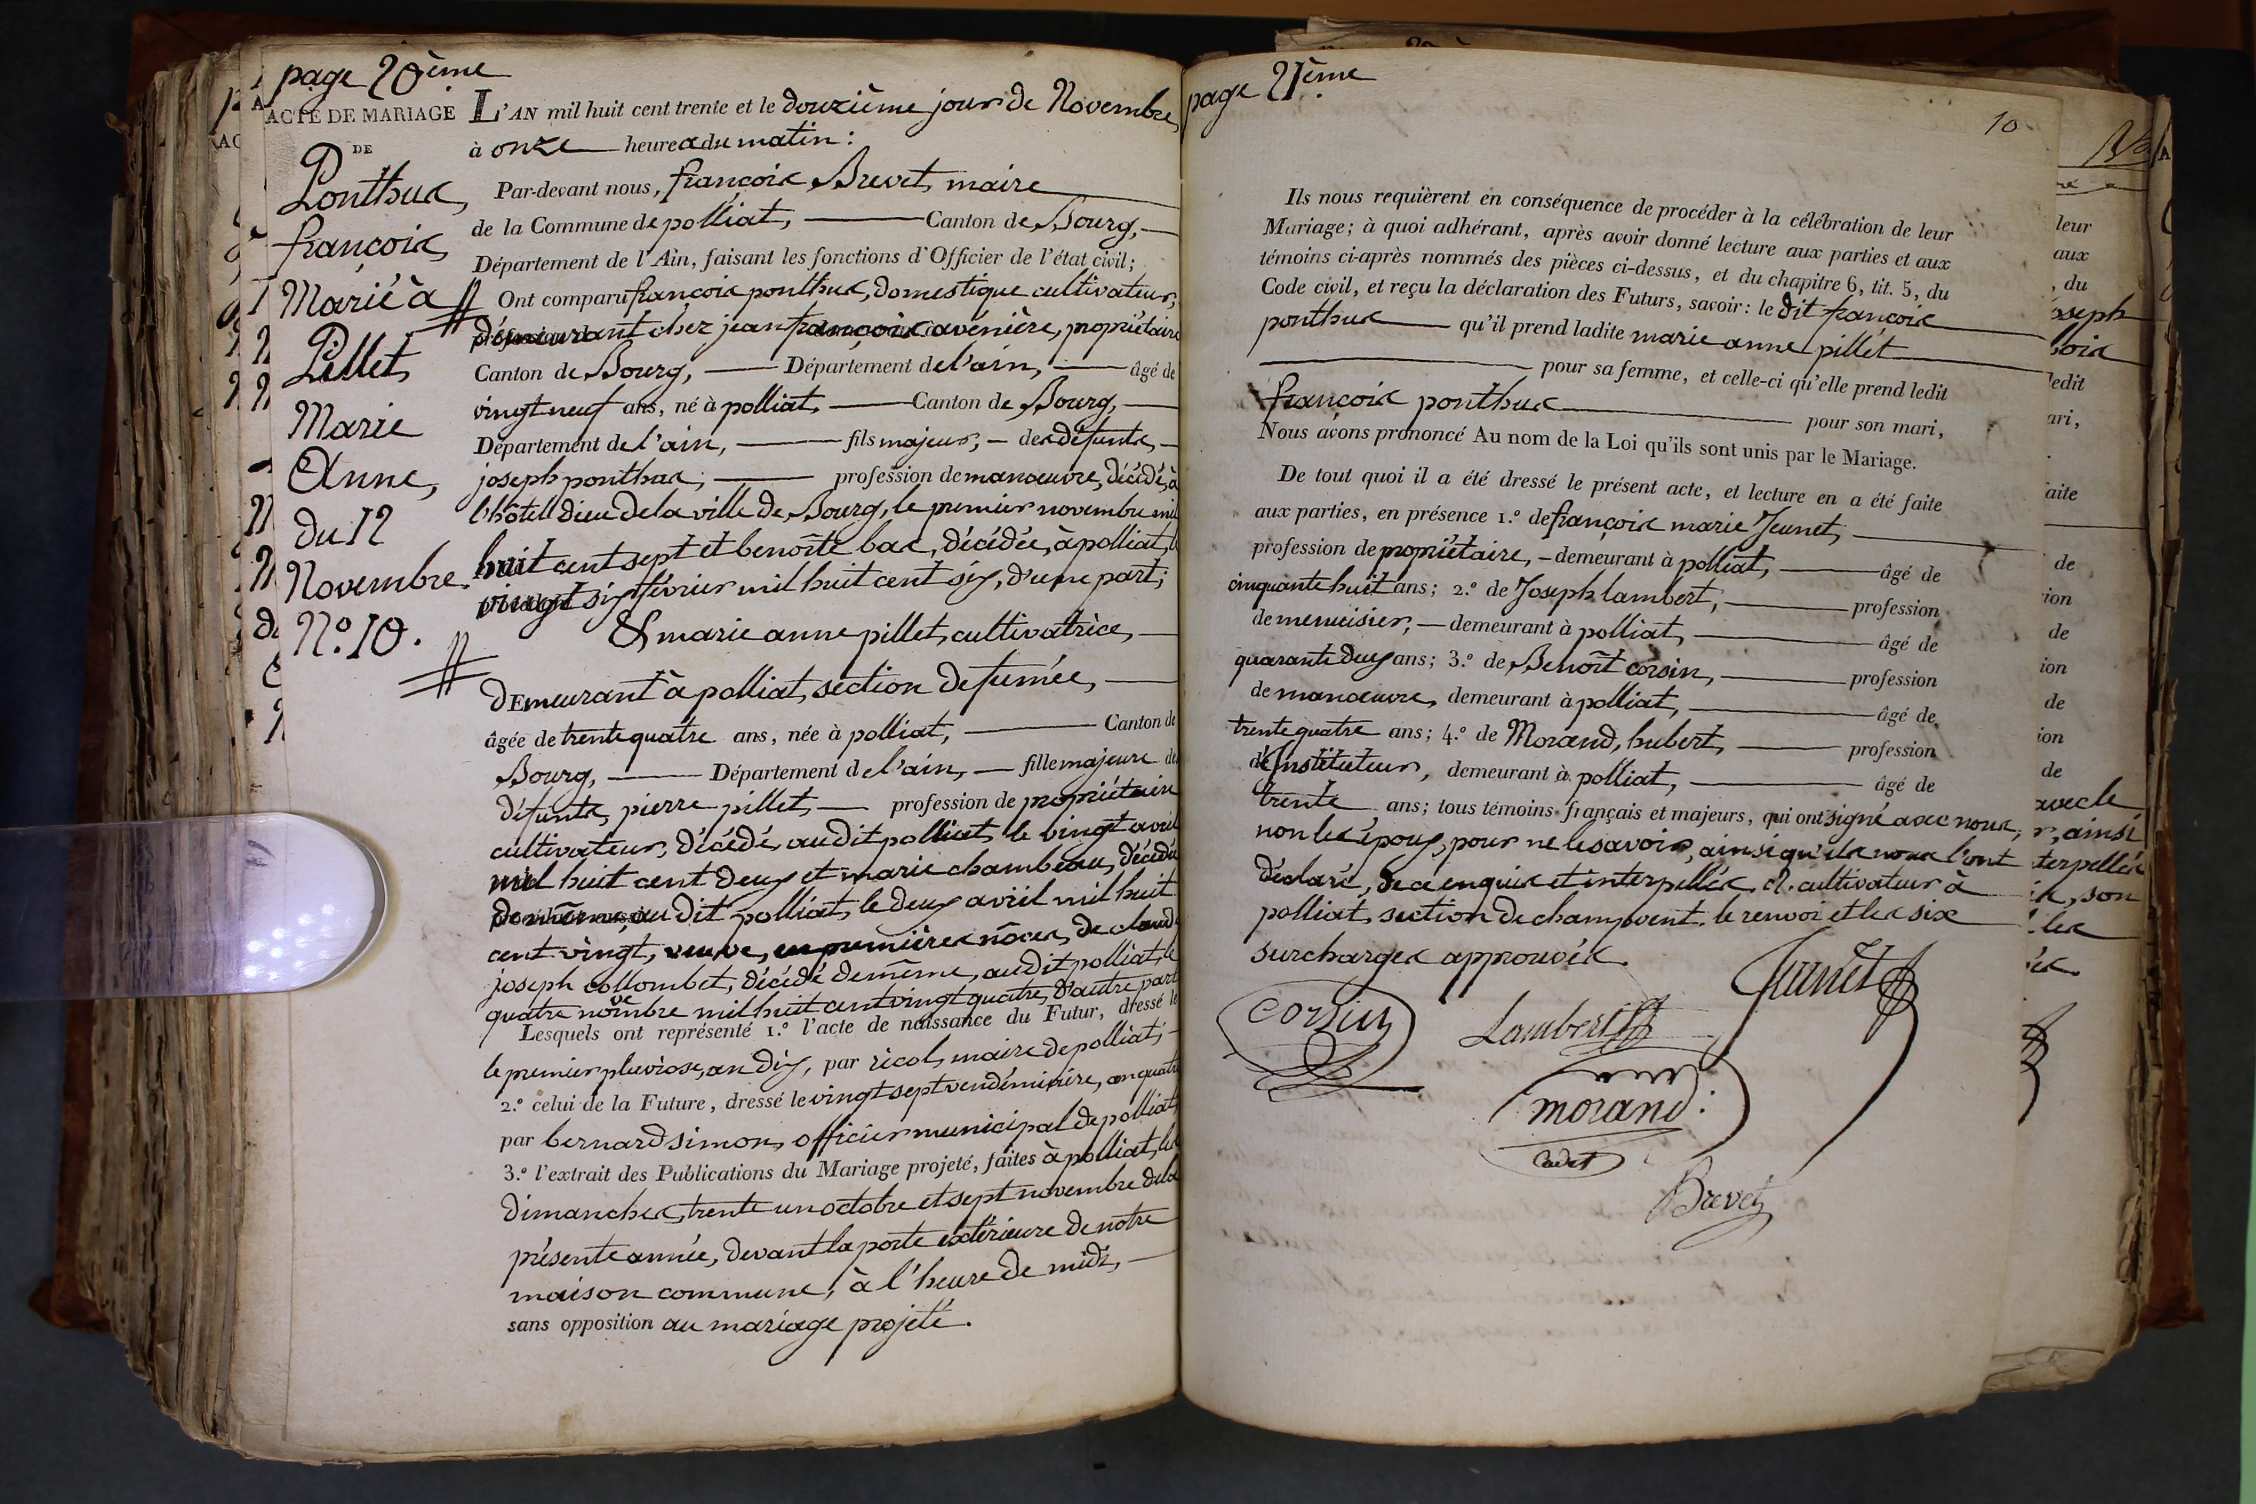 page 20ème
ACTE DE MARIAGE
DE
Ponthus,
françois,
Marié à
Pillet,
Marie
Anne,
du 12
Novembre.
N.º 10.
L'AN mil huit cent trente et le douzième jour de Novembre,
à onze heures du matin:
Par-devant nous, françois Brevet, maire
de la Commune de polliat, Canton de Bourg,
Département de l'Ain, faisant les fonctions d'Officier de l'état civil;
Ont comparu françois ponthus, domestique cultivateur,
démeurant chez jean françois avénière, propriétaire
Canton de Bourg, Département de l'ain, âgé de
vingt neuf ans, né à polliat, Canton de Bourg,
Département de l'ain, fils majeur, des défunts,
joseph ponthus, profession de manœuvre, décédé, à
l'hôtell dieu de la ville de Bourg, le premier novembre mil
huit cent sept et benoîte bas, décédée, à polliat, le
vingt six février mil huit cent six, d'une part;
Et marie anne pillet, cultivatrice,
DEmeurant à polliat, section de fumée,
âgée de trente quatre ans, née à polliat, Canton de
Bourg, Département de l'ain, fille majeure de
défunts, pierre pillet, profession de propriétaire
cultivateur, décédé, audit polliat, le vingt avril
mil huit cent deux et marie chambeau, décédée
de même, au dit polliat, le deux avriil mil huit
cent vingt, veuve, en premières nôces, de claude
joseph collombet, décédé de même, audit polliat, le
quatre novembre mil huit cent vingt quatre, d'autre part
Lesquels ont représenté 1.º l'acte de naissance du Futur, dressé le
le premier pluviose, an dix, par ricol, maire de polliat,
2.º celui de la Future, dressé le vingt sept vendémiaire, an quatre
par bernard simon, officier municipal de polliat,
3.º l'extrait des Publications du Mariage projeté, faites à polliat, les
dimanches, trente un octobre et sept novembre de la
présente année, devant la porte extérieure de notre
maison commune, à l'heure de midi,
sans opposition au mariage projeté.
page 21ème
10
Ils nous requièrent en conséquence de procéder à la célébration de leur
Mariage; à quoi adhérant, après avoir donné lecture aux parties et aux
témoins ci-après nommés des pièces ci-dessus, et du chapitre 6, tit. 5, du
Code civil, et reçu la déclaration des Futurs, savoir: le dit françois
ponthus qu'il prend ladite marie anne pillet
pour sa femme, et celle-ci qu'elle prend ledit
françois ponthus pour son mari,
Nous avons prononcé Au nom de la Loi qu'ils sont unis par le Mariage.
De tout quoi il a été dressé le présent acte, et lecture en a été faite
aux parties, en présence 1.º de françois marie Jeunet,
profession de propriétaire, demeurant à polliat, âgé de
cinquante huit ans; 2.º de Joseph lambert, profession
de menuisier, demeurant à polliat, âgé de
quarante deux ans; 3.º de Benoît corsin, profession
de manœuvre, demeurant à polliat, âgé de
trente quatre ans; 4.º de Morand, hubert, profession
d'Instituteur, demeurant à polliat, âgé de
trente ans; tous témoins français et majeurs, qui ont signé avec nous,
non les époux, pour ne le savoir, ainsi qu'ils nous l'ont
déclaré, de ce enquis et interpellés. cultivateur à
polliat, section de champvent. le renvoi et les six
surcharges approuvés.
Corsin
Lambert
Jeunet
morand:
Cadet
Brevet
leur
aux
, du
joseph
ledit
ari,
aite
de
ion
de
ion
de
ion
de
avec le
r, ainsi
terpellés
son
les